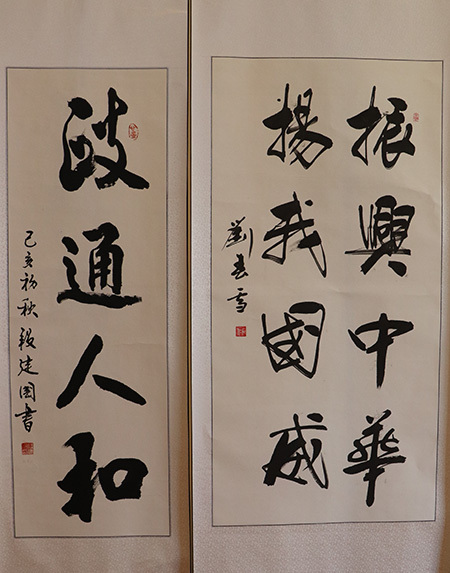 振興中華
揚我國威
劉春雪
政通人和
己亥初秋段建国書